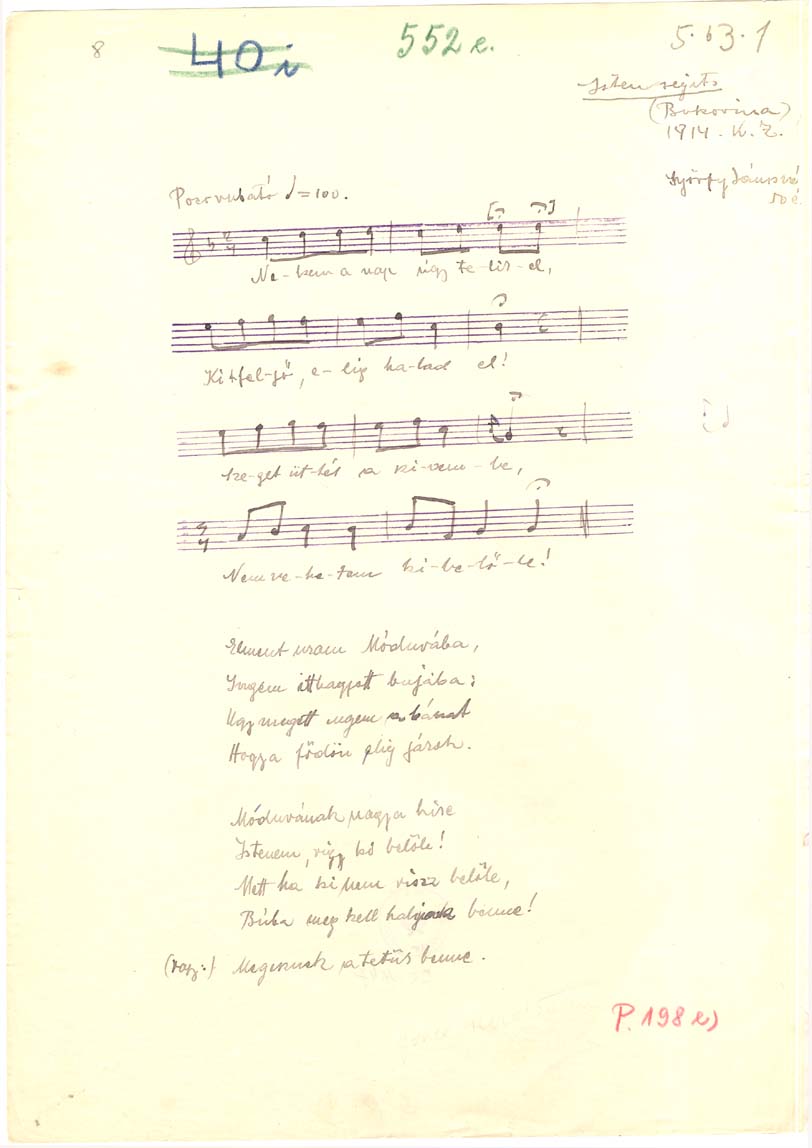 8
40 i
552 e.
5.63.1
Istensegíts
(Bukovina)
1914. K. Z.
Györfy Jánosné
50 é.
Poco rubato ♩=100.
Ne-kem a nap úgy te-lis-el,
Ki+fel-jő, e-lig ha-lad el!
Sze-get üt-tél a szi-vem-be,
Nem ve-he-tem ki be-lő-le!
Elment uram Móduvába,
Ingem itthagyott bujába:
Úgy megett engem a bánat
Hogy a födön elig járok.
Móduvának nagy a híre
Istenem, vigy ki belőle!
Mett ha ki nem vissz belőle,
Búba meg kell haljack benne!
(vagy:) Megesznek a tetűs benne.
P. 198 e)